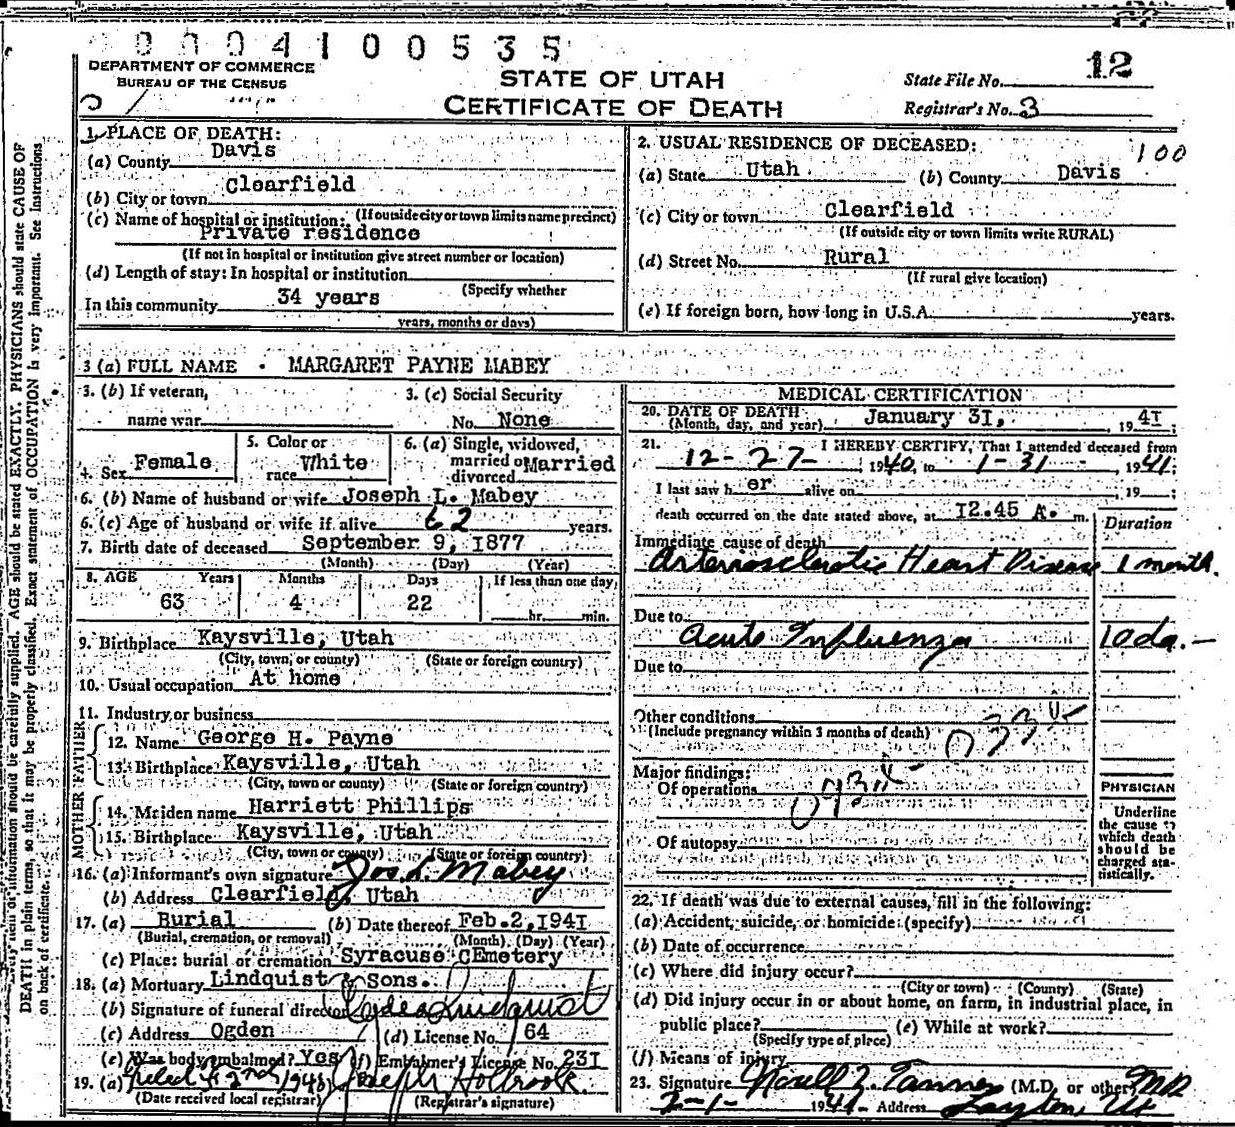 0004100535
DEPARTMENT OF COMMERCE
BUREAU OF THE CENSUS
STATE OF UTAH
CERTIFICATE OF DEATH
State File No. 12
Registrar's No. 3
1. PLACE OF DEATH:
(a) County Davis
(b) City or town Clearfield
(If outside city or town limits name precinct)
(c) Name of hospital or institution:
Private residence
(If not in hospital or institution give street number or location)
(d) Length of stay: In hospital or institution
(Specify whether
In this community 34 years
years, months or days)
2. USUAL RESIDENCE OF DECEASED: 100
(a) State Utah (b) County Davis
(c) City or town Clearfield
(If outside city or town limits write RURAL)
(d) Street No. Rural
(If rural give location)
(e) If foreign born, how long in U.S.A. years.
3 (a) FULL NAME - MARGARET PAYNE MABEY
3. (b) If veteran, name war
3. (c) Social Security No. None
4. Sex Female
5. Color or race White
6. (a) Single, widowed, married or divorced Married
6. (b) Name of husband or wife Joseph L. Mabey
6. (c) Age of husband or wife if alive 62 years.
7. Birth date of deceased September 9, 1877
(Month) (Day) (Year)
8. AGE Years Months Days If less than one day
63 4 22 hr. min.
9. Birthplace Kaysville, Utah
(City, town, or county) (State or foreign country)
10. Usual occupation At home
11. Industry or business
FATHER
12. Name George H. Payne
13. Birthplace Kaysville, Utah
(City, town or county) (State or foreign country)
MOTHER
14. Maiden name Harriett Phillips
15. Birthplace Kaysville, Utah
(City, town or county) (State or foreign country)
16. (a) Informant's own signature Jos. L. Mabey
(b) Address Clearfield, Utah
17. (a) Burial (b) Date thereof Feb. 2, 1941
(Burial, cremation, or removal) (Month) (Day) (Year)
(c) Place: burial or cremation Syracuse CEmetery
18. (a) Mortuary Lindquist & Sons.
(b) Signature of funeral director Clyde Lindquist
(c) Address Ogden (d) License No. 64
(e) Was body embalmed? Yes (f) Embalmer's License No. 231
19. (a) Filed 2nd Joseph Holbrook
(Date received local registrar) (Registrar's signature)
MEDICAL CERTIFICATION
20. DATE OF DEATH January 31, 1941;
(Month, day, and year)
21. I HEREBY CERTIFY, That I attended deceased from
12-27- 1940, to 1-31- 1941;
I last saw her alive on 19
death occurred on the date stated above, at 12.45 A. m.
Duration
Immediate cause of death
Arteriosclerotic Heart Disease 1 month.
Due to
Acute Influenza 10 da.-
Due to
Other conditions
(Include pregnancy within 3 months of death)
Major findings:
Of operations
Of autopsy
PHYSICIAN
Underline
the cause to
which death
should be
charged sta-
tistically.
22. If death was due to external causes, fill in the following:
(a) Accident, suicide, or homicide (specify)
(b) Date of occurrence
(c) Where did injury occur?
(City or town) (County) (State)
(d) Did injury occur in or about home, on farm, in industrial place, in
public place? (e) While at work?
(Specify type of place)
(f) Means of injury
23. Signature Noall Z. Tanner (M.D. or other) MD
2-1- 1941 Address Layton, Ut
AGE should be stated EXACTLY. PHYSICIANS should state CAUSE OF
DEATH in plain terms, so that it may be properly classified. Exact statement of OCCUPATION is very important. See instructions
on back of certificate.